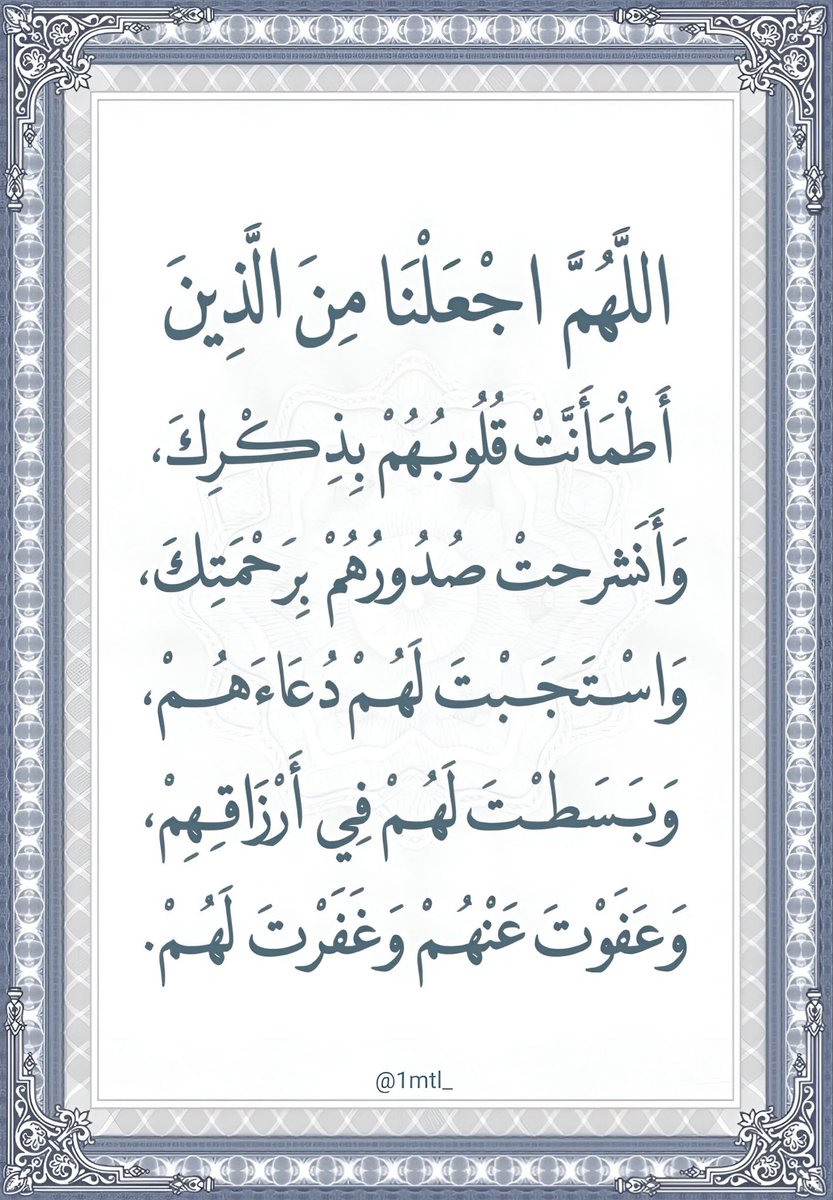 اللَّهُمَّ اجْعَلْنَا مِنَ الَّذِينَ
أَطْمَأَنَّتْ قُلُوبُهُمْ بِذِكْرِكَ،
وَأَنَشرحتْ صُدُورُهُمْ بِرَحْمَتِكَ،
وَاسْتَجَبْتَ لَهُمْ دُعَاءَهُمْ،
وَبَسَطْتَ لَهُمْ فِي أَرْزَاقِهِمْ،
وَعَفَوْتَ عَنْهُمْ وَغَفَرْتَ لَهُمْ.
@1mtl_